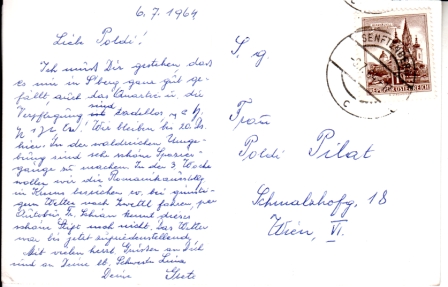 6. 7. 1964
Lieb Poldi!
Ich muß Dir gestehen das
es mir in S'berg ganz gut ge-
fällt auch das Quartier u. die
Verpflegung sind tadellos
Wir bleiben bis 20. ds.
hier. In der waldreichen Umge-
bung sind sehr schöne Spazier-
gänge zu machen. In der 3. Woche
wollen wir die Romanikausstellg
in Krems besuchen ev. bei günsti-
gem Wetter nach Zwettl fahren, per
Autobus. Fr. kennt dieses
schöne Stift noch nicht. Das Wetter
war bis jetzt zufriedenstellend.
Mit vielen herzl. Grüssen an Dich
und an Deine lb. Schwester
Deine Grete
S. g.
Frau
Poldi Pilat
Schmalzhofg. 18
Wien, VI.
SENFTENB
REPUBLIK ÖSTERREICH